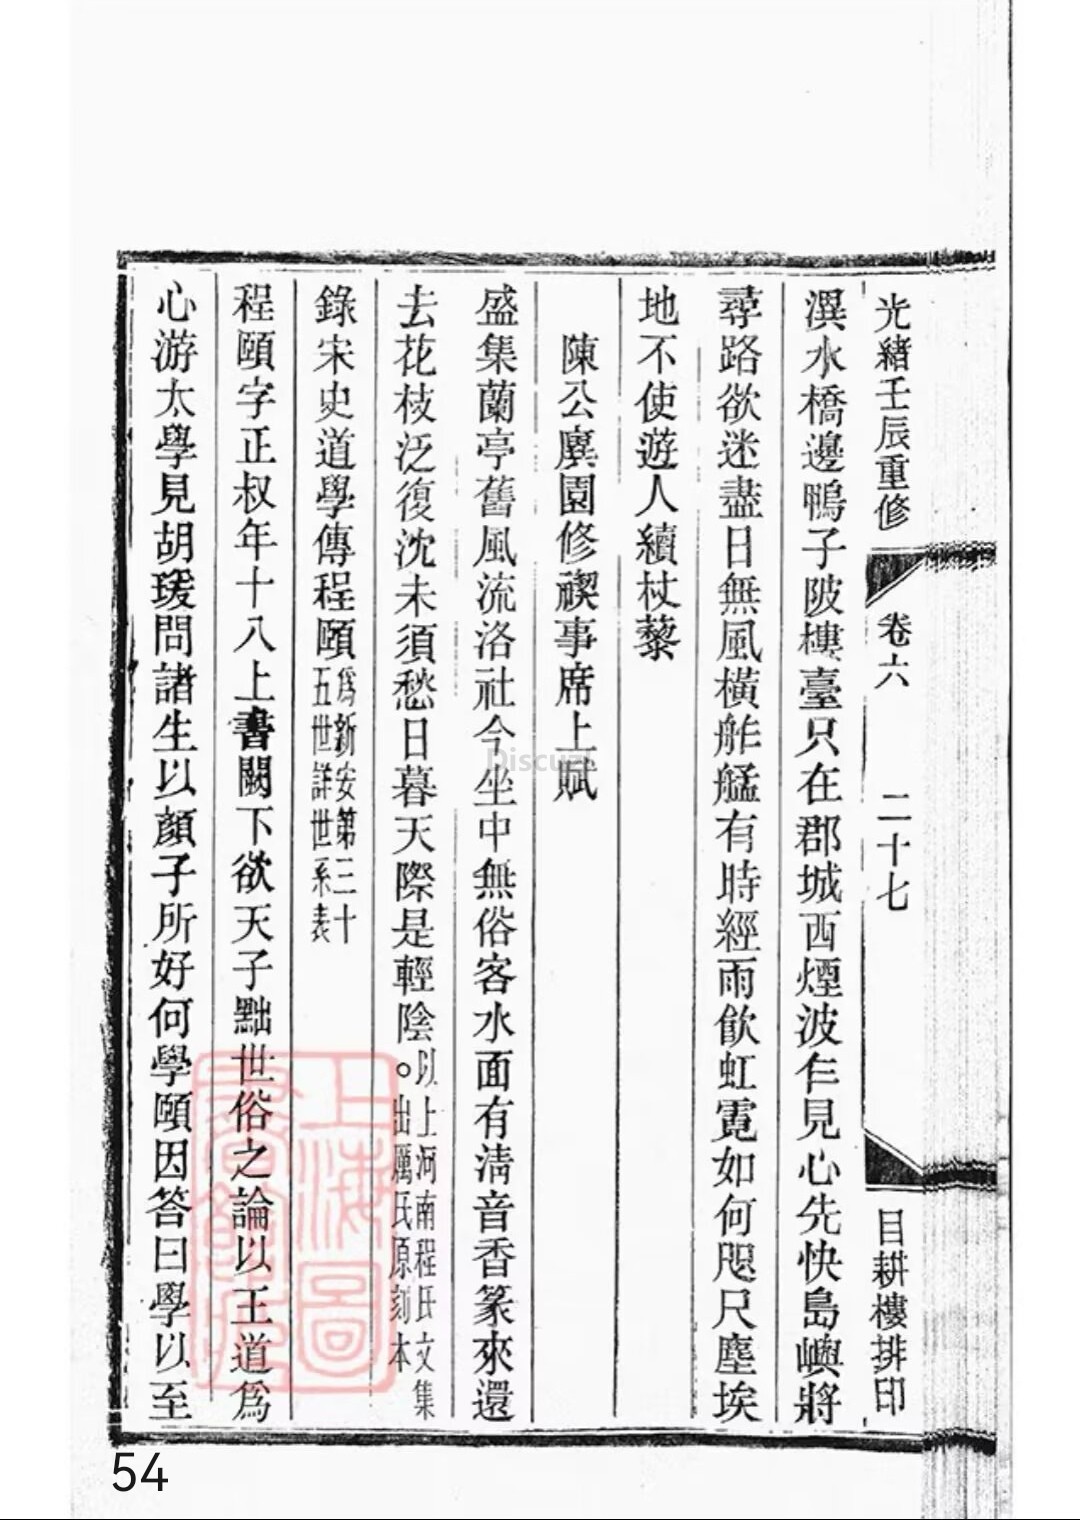 光緒壬辰重修
卷六
二十七
目耕樓排印
潩水橋邊鴨子陂樓臺只在郡城西煙波乍見心先快島嶼將
尋路欲迷盡日無風橫舴艋有時經雨飮虹霓如何咫尺塵埃
地不使遊人續杖藜
陳公廙園修禊事席上賦
盛集蘭亭舊風流洛社今坐中無俗客水面有清音香篆來還
去花枝泛復沈未須愁日暮天際是輕陰。以上河南程氏文集
出厲氏原刻本
錄宋史道學傳程頤爲新安第三十
五世詳世系表
程頤字正叔年十八上書闕下欲天子黜世俗之論以王道爲
心游太學見胡瑗問諸生以顏子所好何學頤因答曰學以至
上海圖
書館藏
Discuz!
54